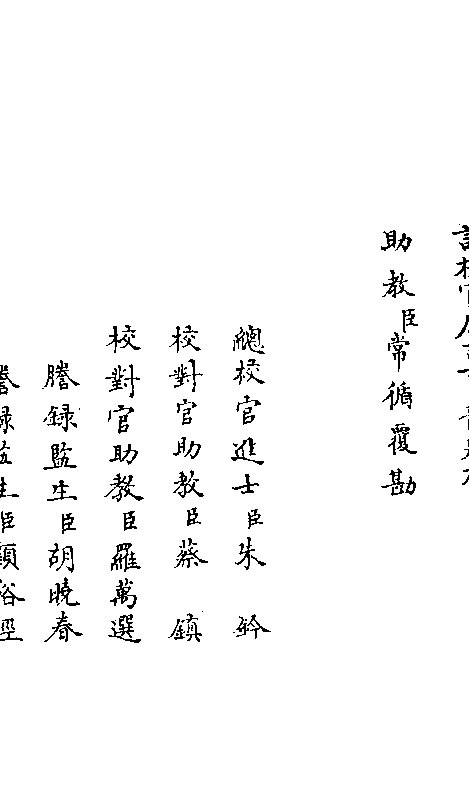 助教臣常循覆勘
總校官進士臣朱鈐
校對官助教臣蔡鎮
校對官助教臣羅萬選
謄録監生臣胡曉春
謄録監生臣顏裕經